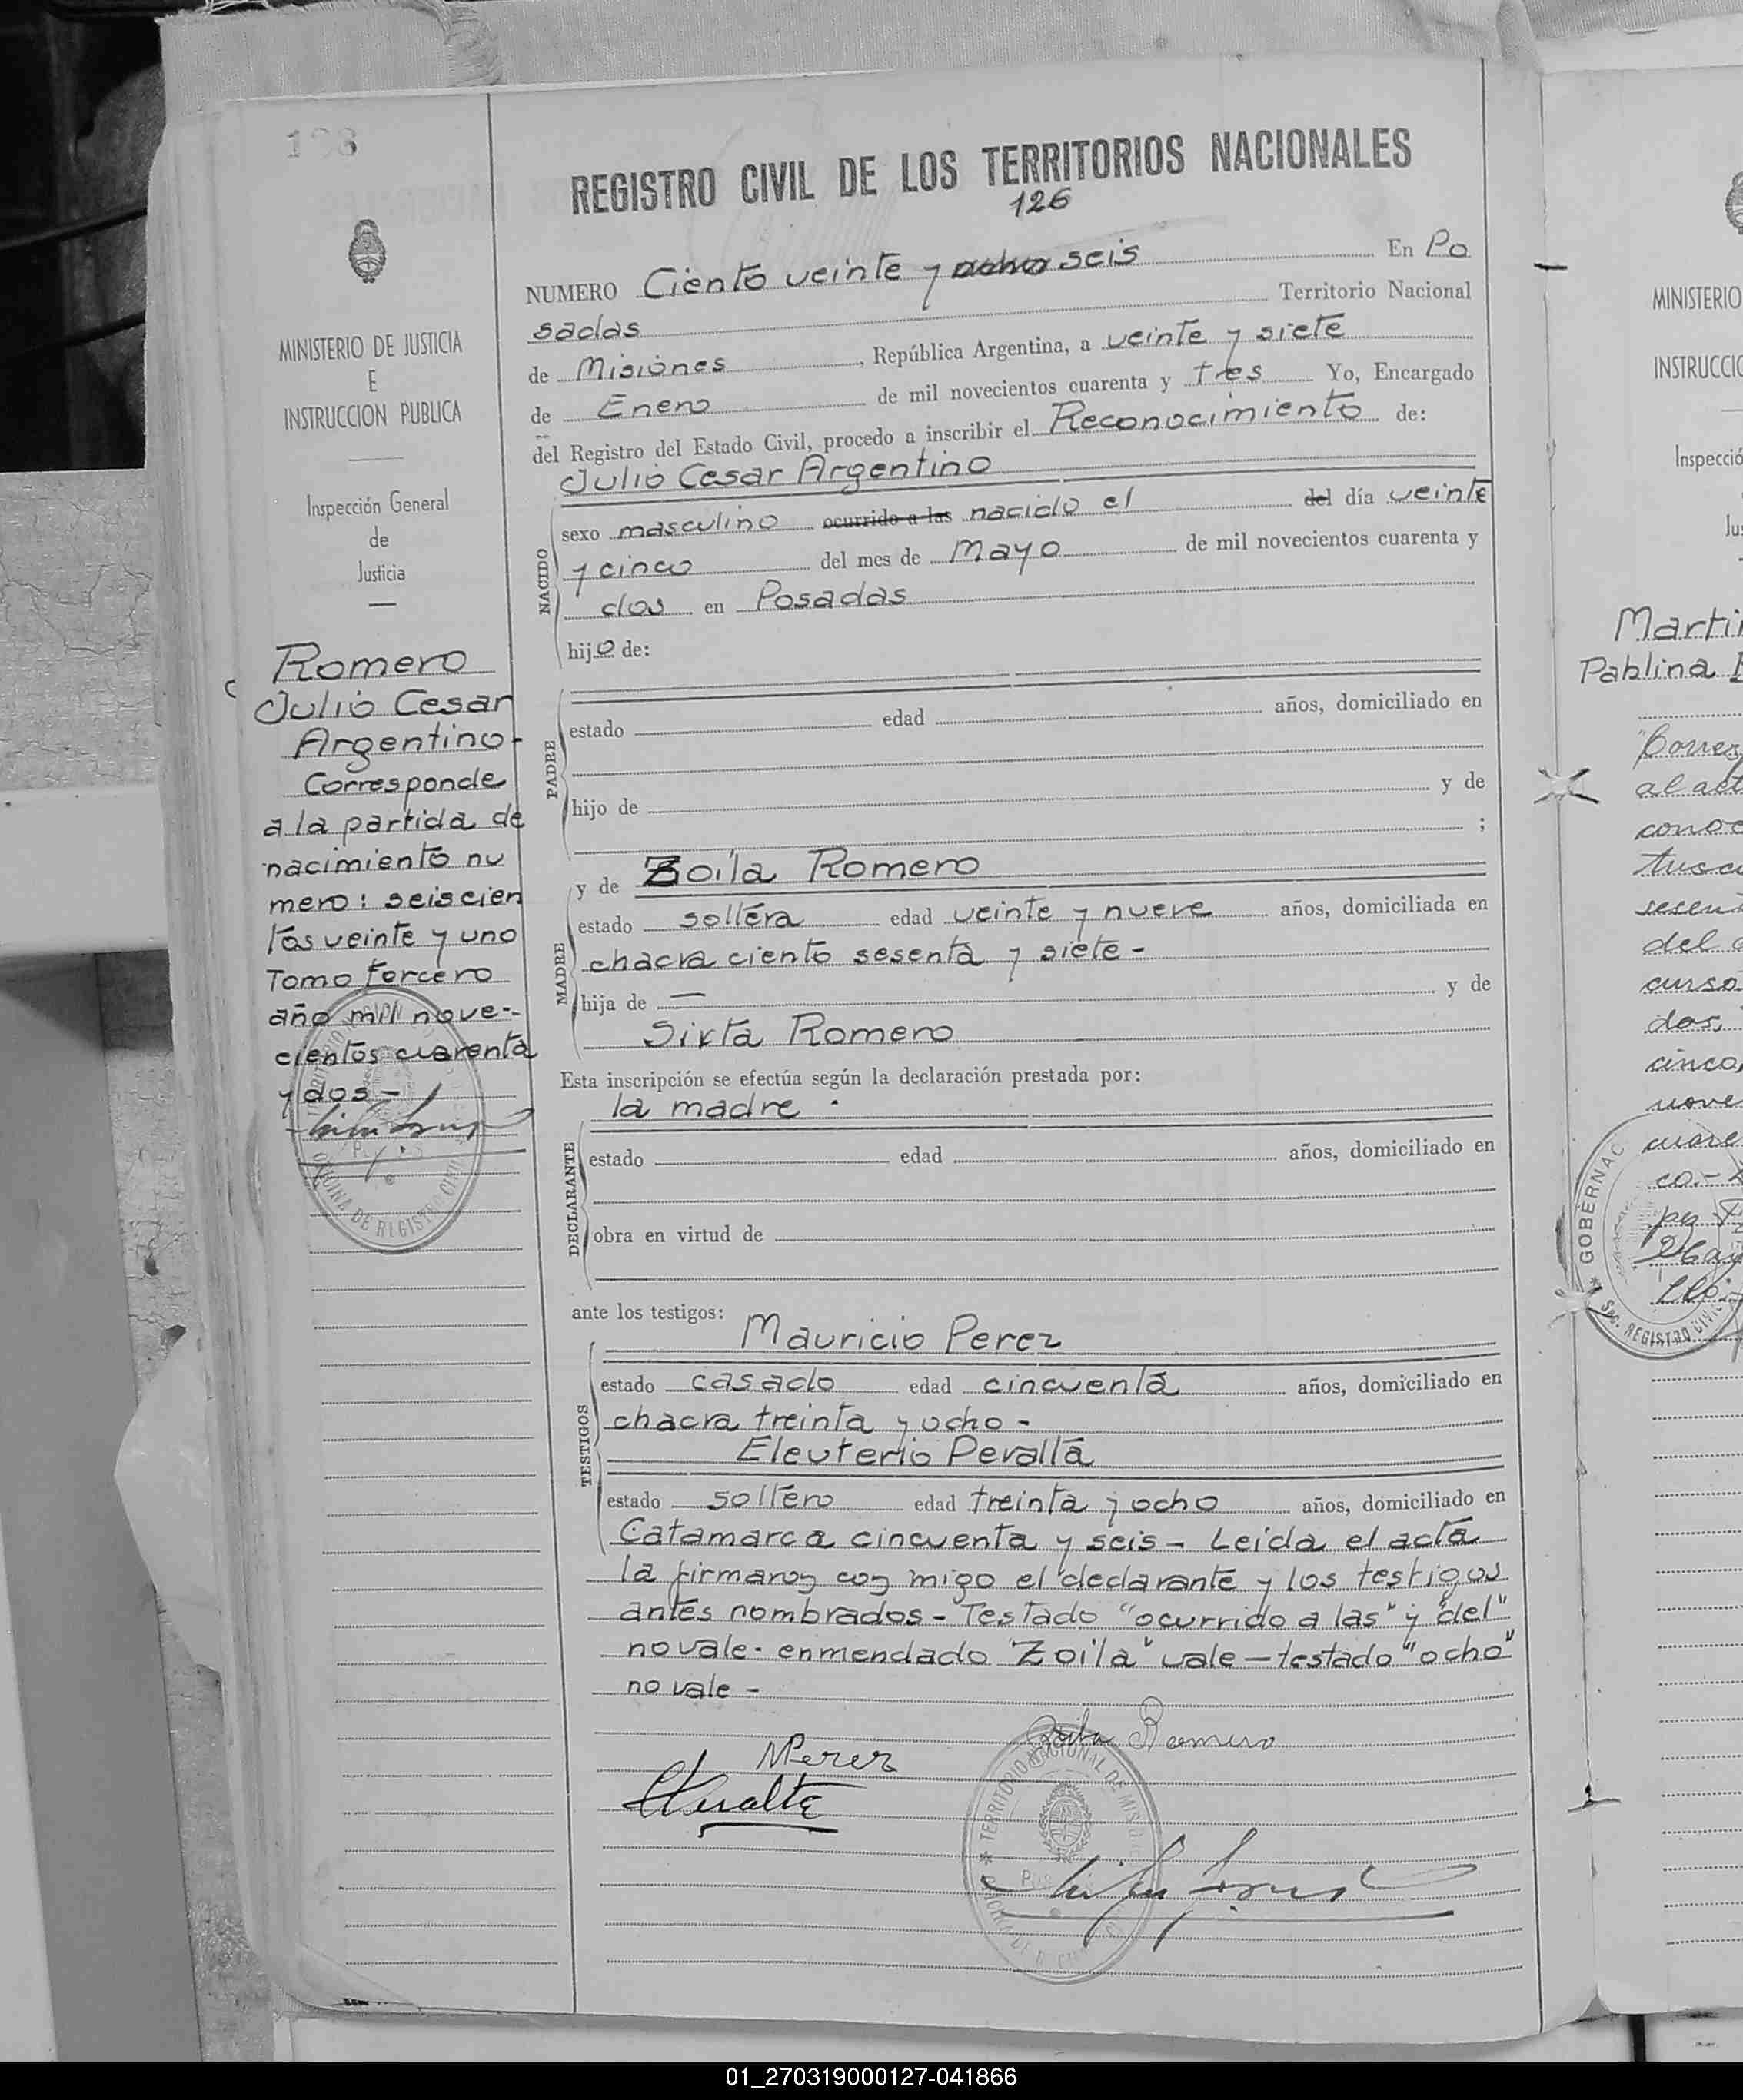 198
REGISTRO CIVIL DE LOS TERRITORIOS NACIONALES
126
NUMERO Ciento veinte y ocho seis En Po
sadas Territorio Nacional
de Misiones, República Argentina, a veinte y siete
de Enero de mil novecientos cuarenta y tres Yo, Encargado
del Registro del Estado Civil, procedo a inscribir el Reconocimiento de:
Julio Cesar Argentino
NACIDO
sexo masculino ocurrido a las nacido el del día veinte
y cinco del mes de Mayo de mil novecientos cuarenta y
dos en Posadas
hijo de:
PADRE
estado edad años, domiciliado en
hijo de y de
;
MADRE
y de Zoila Romero
estado soltera edad veinte y nueve años, domiciliada en
chacra ciento sesenta y siete -
hija de — y de
Sixta Romero
Esta inscripción se efectúa según la declaración prestada por:
la madre .
DECLARANTE
estado edad años, domiciliado en
obra en virtud de
ante los testigos:
TESTIGOS
Mauricio Perez
estado casado edad cincuenta años, domiciliado en
chacra treinta y ocho -
Eleuterio Peralta
estado soltero edad treinta y ocho años, domiciliado en
Catamarca cincuenta y seis - Leida el acta
la firmaron con migo el declarante y los testigos
antes nombrados - Testado "ocurrido a las" y "del"
no vale - enmendado "Zoila" vale - testado "ocho"
no vale -
Zoila Romero
MPerez
EPeralta
TERRITORIO NACIONAL DE MISIONES
MINISTERIO DE JUSTICIA
E
INSTRUCCION PUBLICA
Inspección General
de
Justicia
Romero
Julio Cesar
Argentino -
Corresponde
a la partida de
nacimiento nu
mero: seiscien
tos veinte y uno
Tomo tercero
año mil nove-
cientos cuarenta
y dos -
OFICINA DE REGISTRO CIVIL
MINISTERIO
INSTRUCCIO
Inspecció
Jus
Marti
Pablina
al act
conoc
del
curso
dos,
cinco,
nove
cuare
co.-
GOBERNAC
Sec. REGISTRO CIVIL
01_270319000127-041866